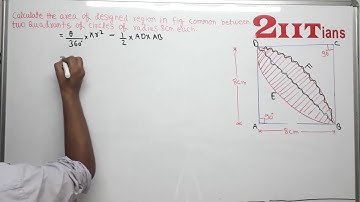 Calculate the area of designed region in Fig common between
two Quadrants of circles of radius 8cm each.
2IITians
= θ/360° × πr² − 1/2 × AD × AB
D
C
90°
F
E
90°
A
B
8cm